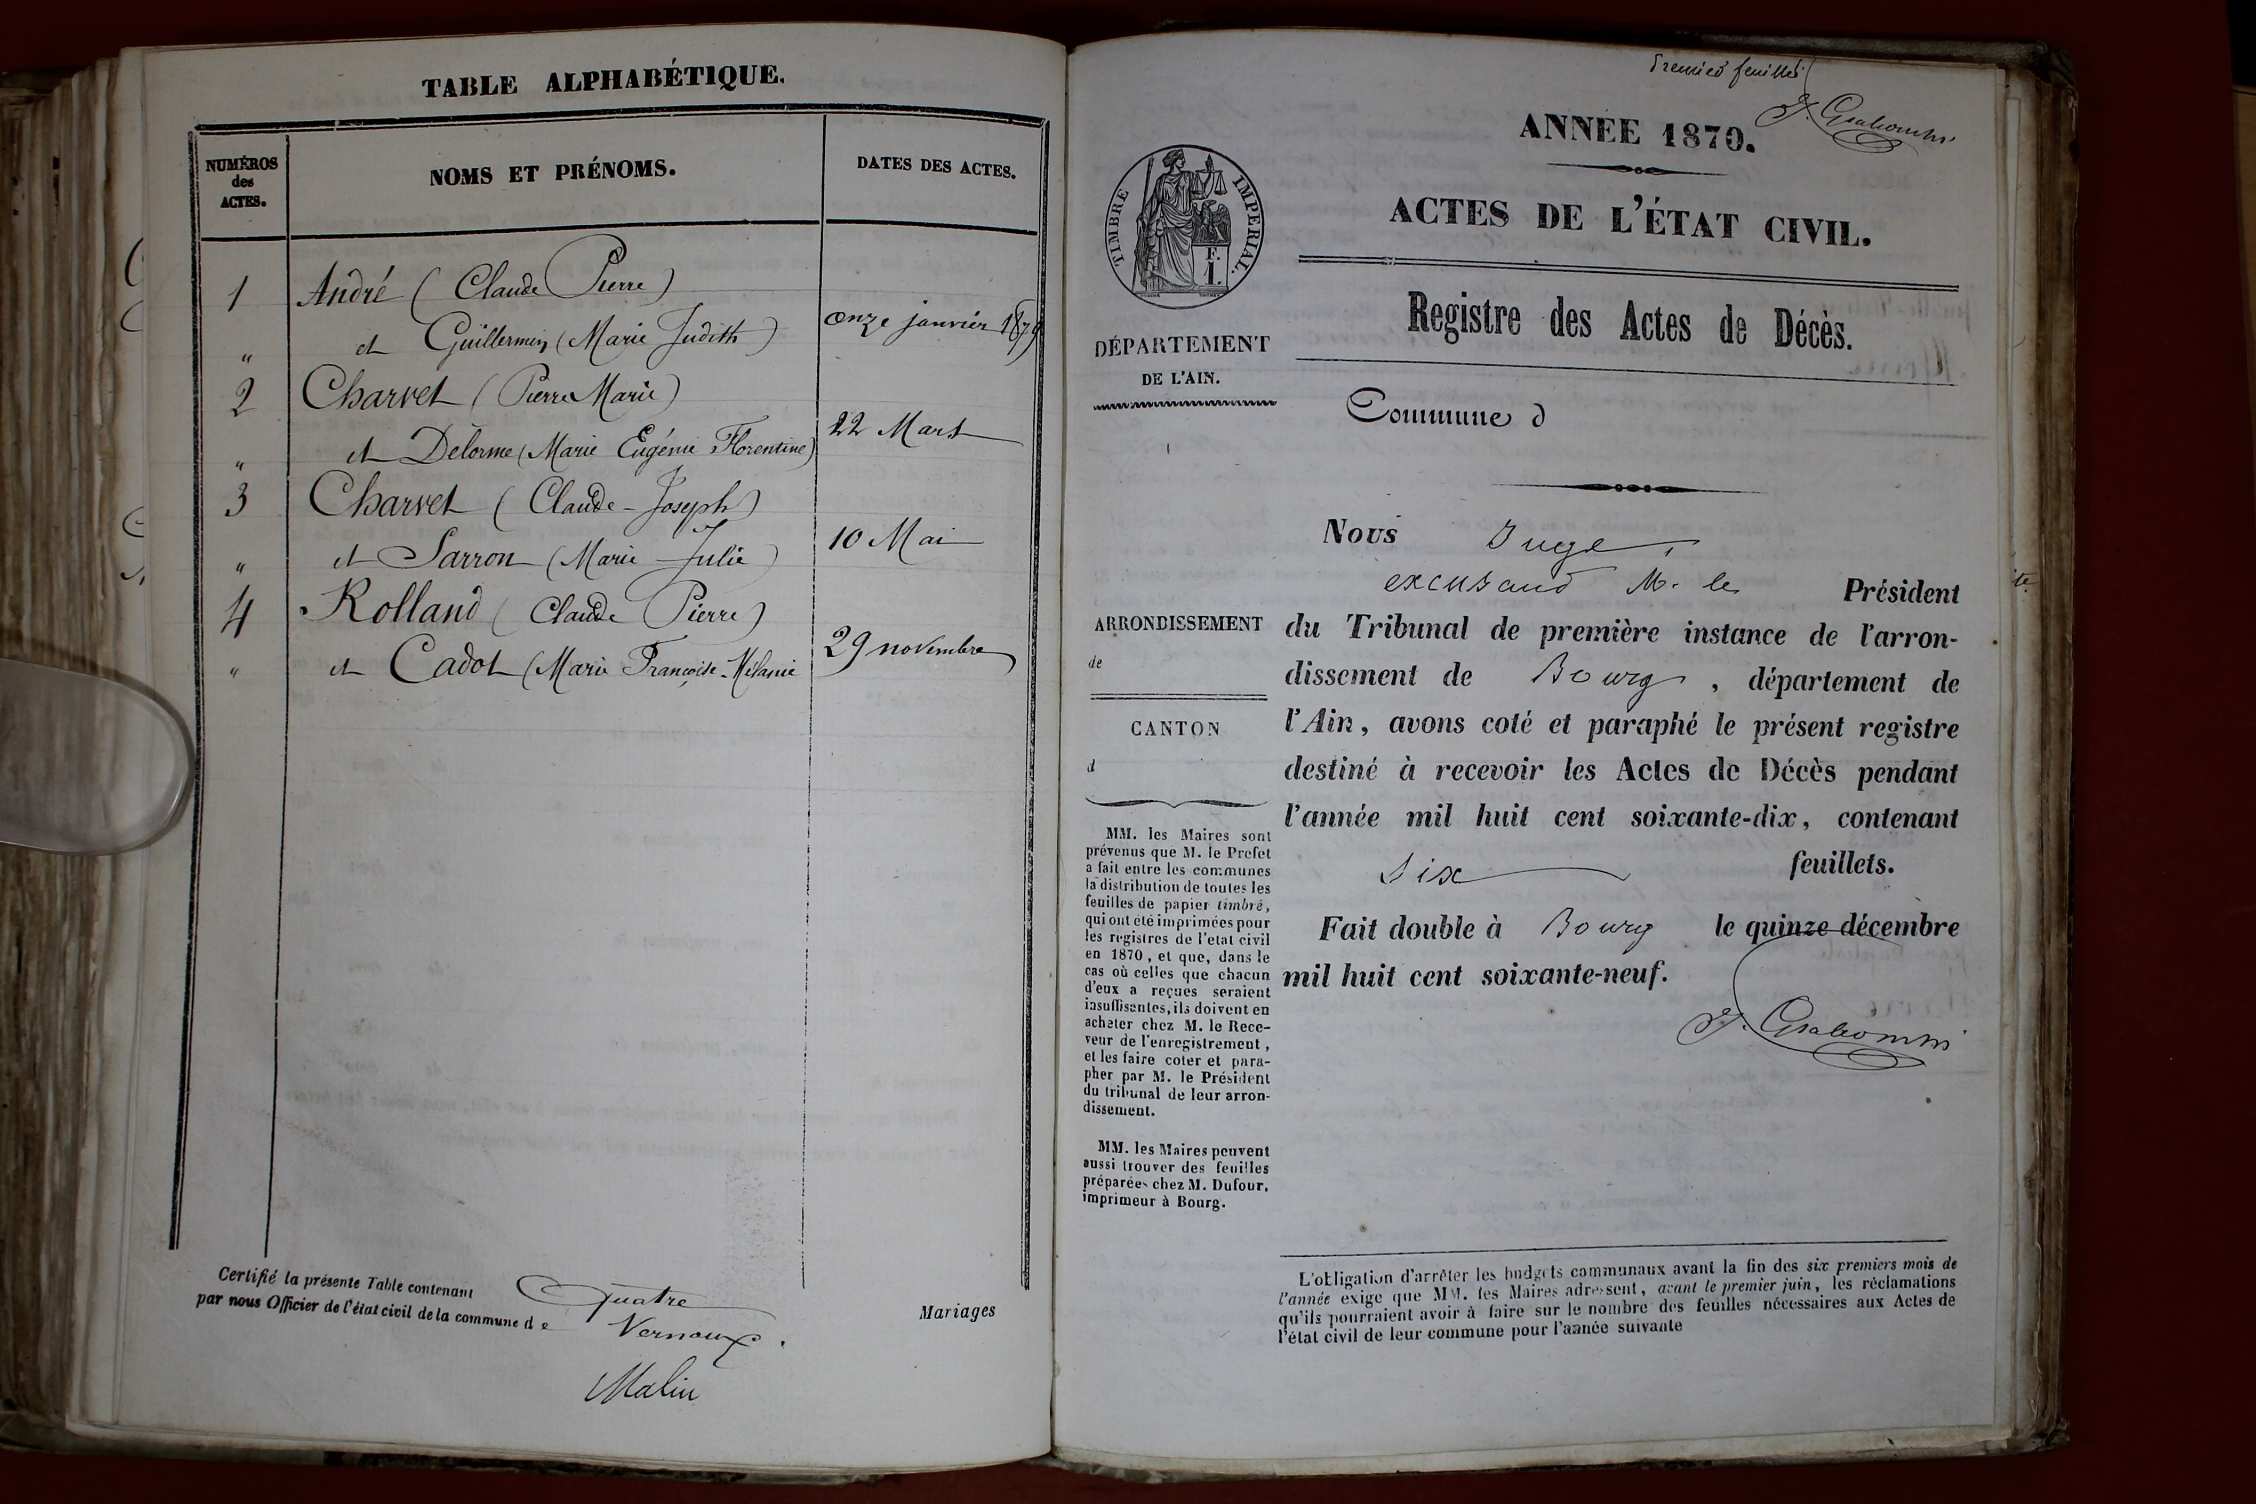 TABLE ALPHABÉTIQUE.
NUMÉROS
des
ACTES.
NOMS ET PRÉNOMS.
DATES DES ACTES.
1 André (Claude Pierre)
" et Guillermin (Marie Judith) onze janvier 1870
2 Charvet (Pierre Marie)
" et Delorme (Marie Eugénie Florentine) 22 Mars
3 Charvet (Claude-Joseph)
" et Sarron (Marie Julie) 10 Mai
4 Rolland (Claude Pierre)
" et Cadot (Marie Françoise-Mélanie 29 novembre
Certifié la présente Table contenant Quatre Mariages
par nous Officier de l'état civil de la commune de Vernoux.
Malin
Premier feuillet
ANNÉE 1870.
ACTES DE L'ÉTAT CIVIL.
TIMBRE IMPERIAL.
F.
1.
Registre des Actes de Décès.
DÉPARTEMENT
DE L'AIN.
Commune d
Nous Juge,
M. le Président
ARRONDISSEMENT
de
du Tribunal de première instance de l'arron-
dissement de Bourg, département de
l'Ain, avons coté et paraphé le présent registre
destiné à recevoir les Actes de Décès pendant
l'année mil huit cent soixante-dix, contenant
Six feuillets.
Fait double à Bourg le quinze décembre
mil huit cent soixante-neuf.
CANTON
d
MM. les Maires sont
prévenus que M. le Prefet
a fait entre les communes
la distribution de toutes les
feuilles de papier timbré,
qui ont été imprimées pour
les registres de l'etat civil
en 1870, et que, dans le
cas où celles que chacun
d'eux a reçues seraient
insuffisantes, ils doivent en
acheter chez M. le Rece-
veur de l'enregistrement,
et les faire coter et para-
pher par M. le Président
du tribunal de leur arron-
dissement.
MM. les Maires peuvent
aussi trouver des feuilles
préparées chez M. Dufour,
imprimeur à Bourg.
L'obligation d'arrêter les budgets communaux avant la fin des six premiers mois de
l'année exige que MM. les Maires adressent, avant le premier juin, les réclamations
qu'ils pourraient avoir à faire sur le nombre des feuilles nécessaires aux Actes de
l'état civil de leur commune pour l'année suivante